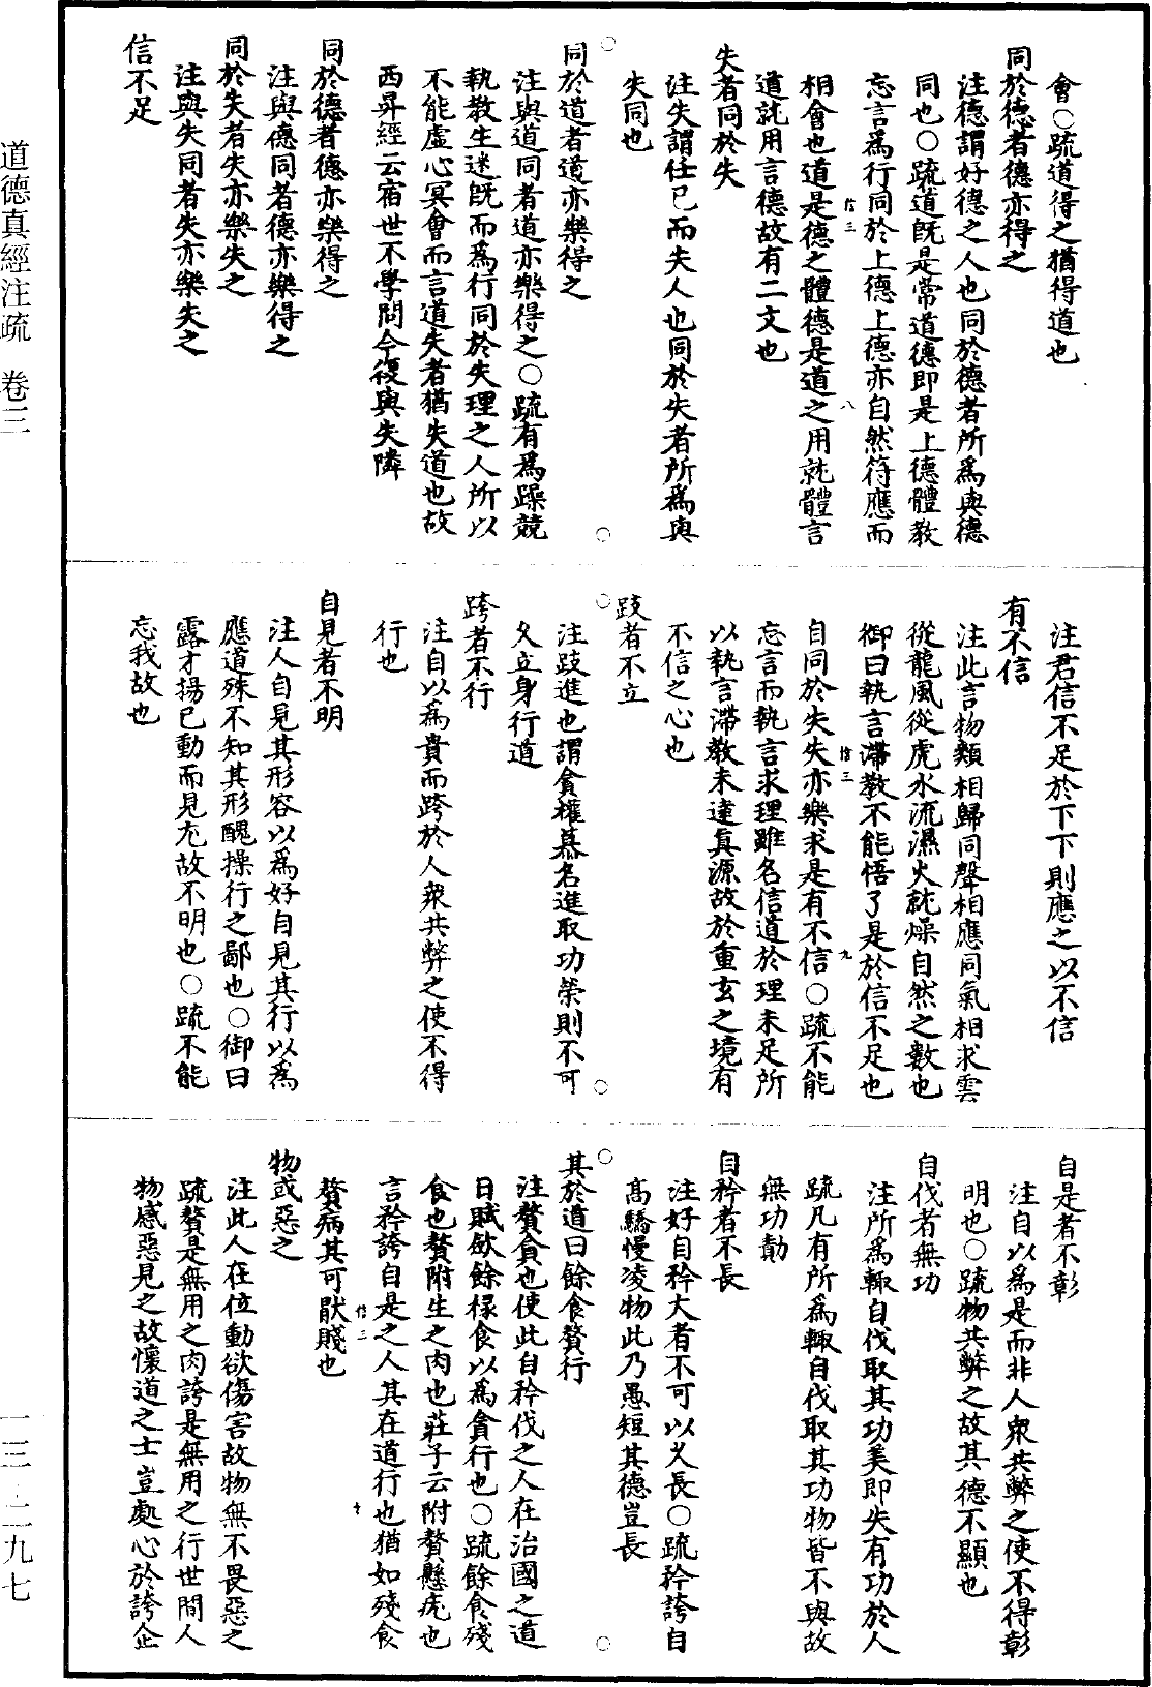 會○疏道得之猶得道也
同於德者德亦得之
注德謂好德之人也同於德者所爲與德
同也○疏道旣是常道德即是上德體教
忘言爲行同於上德上德亦自然符應而
信三 八
相會也道是德之體德是道之用就體言
道就用言德故有二文也
失者同於失
注失謂任已而失人也同於失者所爲與
失同也
同於道者道亦樂得之
注與道同者道亦樂得之○疏有爲躁競
執教生迷旣而爲行同於失理之人所以
不能虛心冥會而言道失者猶失道也故
西昇經云宿世不學問今復與失隣
同於德者德亦樂得之
注與德同者德亦樂得之
同於失者失亦樂失之
注與失同者失亦樂失之
信不足
注君信不足於下下則應之以不信
有不信
注此言物類相歸同聲相應同氣相求雲
從龍風從虎水流濕火就燥自然之數也
御曰執言滯教不能悟了是於信不足也
信三 九
自同於失失亦樂求是有不信○疏不能
忘言而執言求理雖名信道於理未足所
以執言滯教未達真源故於重玄之境有
不信之心也
跂者不立
注跂進也謂貪權慕名進取功榮則不可
久立身行道
跨者不行
注自以爲貴而跨於人衆共弊之使不得
行也
自見者不明
注人自見其形容以爲好自見其行以爲
應道殊不知其形醜操行之鄙也○御曰
露才揚已動而見尤故不明也○疏不能
忘我故也
自是者不彰
注自以爲是而非人衆共弊之使不得彰
明也○疏物共弊之故其德不顯也
自伐者無功
注所爲輒自伐取其功美即失有功於人
疏凡有所爲輒自伐取其功物皆不與故
無功勣
自矜者不長
注好自矜大者不可以乂長○疏矜誇自
高驕慢凌物此乃愚短其德豈長
其於道曰餘食贅行
注贅貪也使此自矜伐之人在治國之道
日賦斂餘祿食以爲貪行也○疏餘食殘
食也贅附生之肉也莊子云附贅懸疣也
言矜誇自是之人其在道行也猶如殘食
信三 十
贅病其可厭賤也
物或惡之
注此人在位動欲傷害故物無不畏惡之
疏贅是無用之肉誇是無用之行世間人
物感惡見之故懷道之士豈處心於誇企
道德真經注疏 卷三
一三-二九七